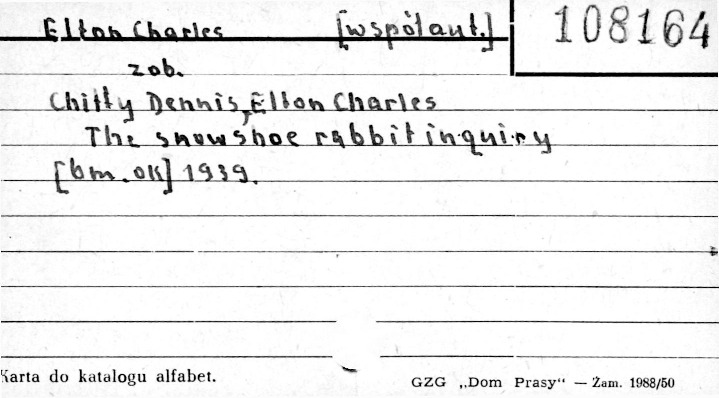 Elton Charles [współaut.] 108164
zob.
Chitty Dennis, Elton Charles
The snowshoe rabbit inquiry
[bm. ok] 1939.
Karta do katalogu alfabet.
GZG „Dom Prasy" — Zam. 1988/50